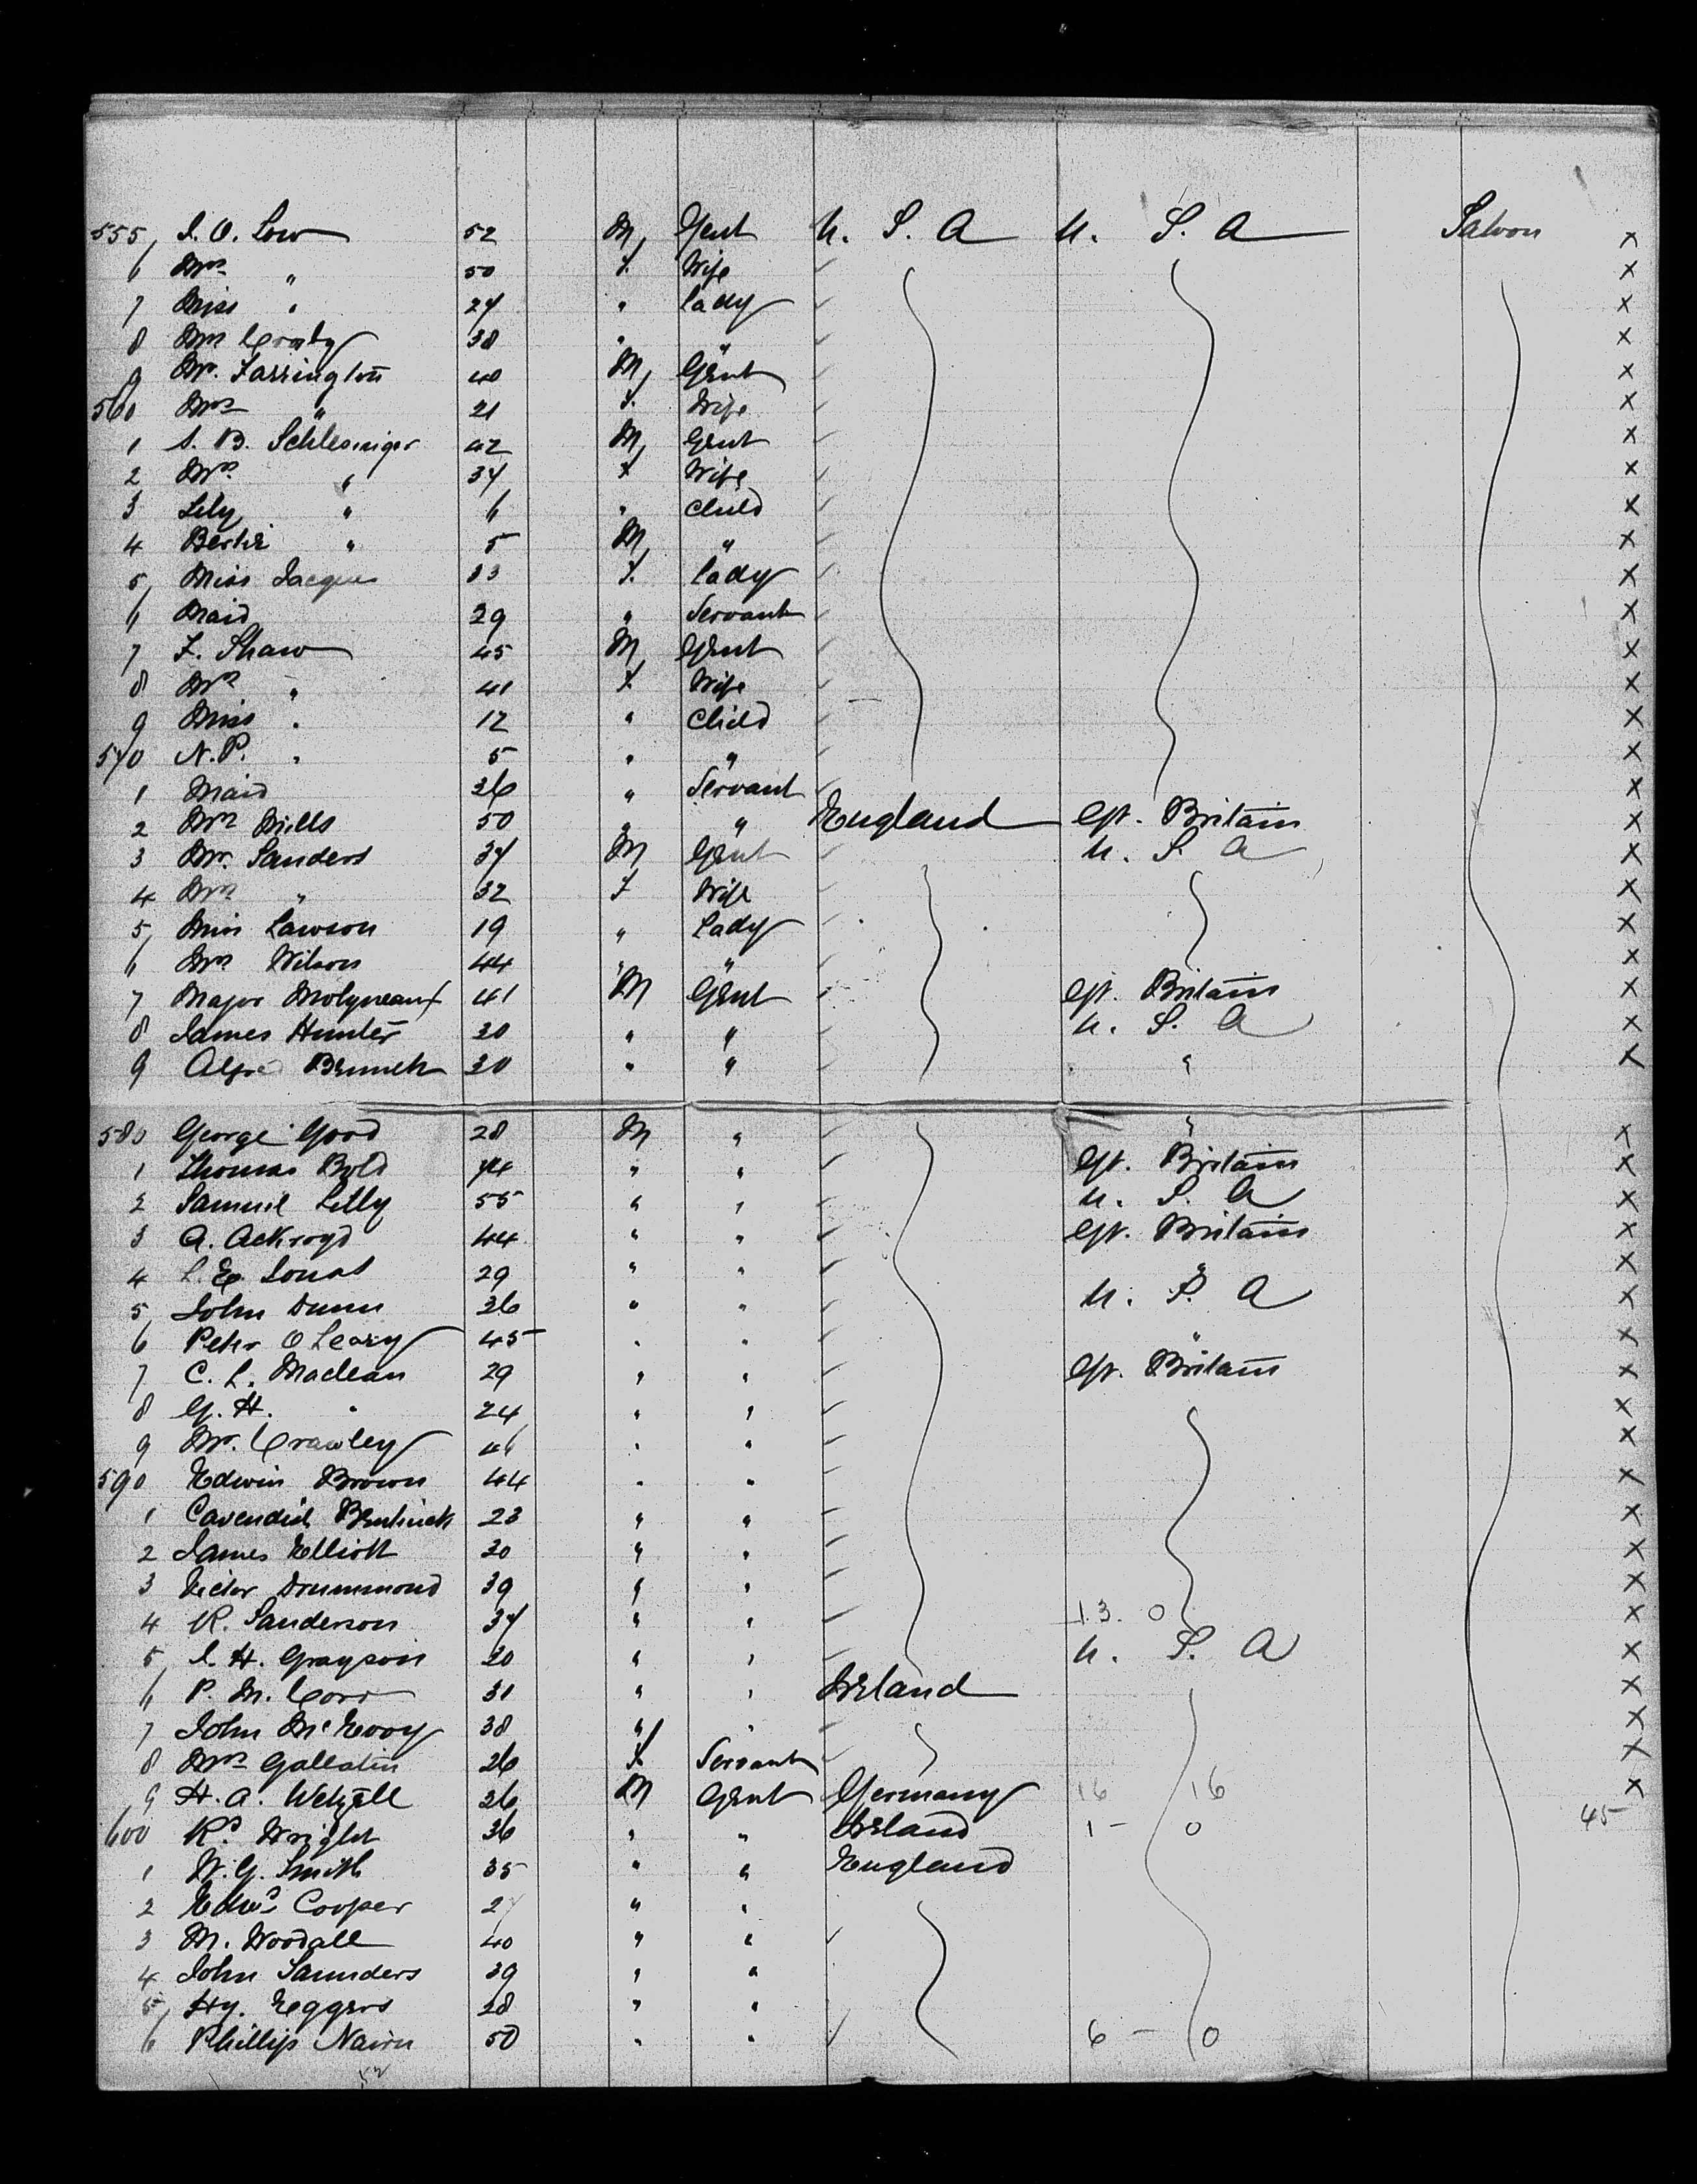 555, I. O. Low 52 M, Gent U. S. A U. S. A Saloon X
6 Mrs " 50 F. Wife X
7 Miss " 27 " Lady X
8 Mrs Crosby 38 " " X
9 Mr. Farrington 40 M, Gent X
560 Mrs " 21 F. Wife X
1 S. B. Schlesinger 42 M, Gent X
2 Mrs " 37 F Wife X
3 Lily " 6 " Child X
4 Bertie " 5 M, " X
5, Miss Jacques 33 F. Lady X
6 Maid 29 " Servant X
7 F. Shaw 45 M, Gent X
8 Mrs " 41 F. Wife X
9 Miss " 12 " Child X
570 N. P. " 5 " " X
1 Maid 26 " Servant X
2 Mrs Mills 50 " " England Gt. Britain X
3 Mr. Sanders 37 M Gent U. S. A X
4 Mrs " 32 F Wife X
5, Miss Lawson 19 " Lady X
6 Mrs Wilson 44 " " X
7 Major Molyneaux 41 M Gent Gt. Britain X
8 James Hunter 20 " " U. S. A X
9 Alfred 30 " " " X
580 George Good 28 M " " X
1 Thomas Bold 74 " " Gt. Britain X
2 Samuel Lilly 55 " " U. S. A X
3 A. Ackroyd 44 " " Gt. Britain X
4 29 " " " X
5, John Dunn 26 " " U. S. A X
6 Peter O Leary 45 " " " X
7 C. L. Maclean 29 " " Gt. Britain X
8 G. H. " 24 " " X
9 Mr. Crawley 46 " " X
590 Edwin Brown 44 " " X
1 Cavendish Bentinck 23 " " X
2 James Elliott 30 " " X
3 Victor Drummond 39 " " X
4 R. Sanderson 37 " " 13. 0 X
5, I. H. Grayson 20 " " U. S. A X
6 P. M. Corr 31 " " Ireland X
7 John McEvoy 38 " " X
8 Mrs Gallatin 26 F. Servant X
9 H. A. Wetzell 26 M Gent Germany 16 16 X
600 Rd Wright 36 " " Ireland 1 - 0 45
1 W. G. Smith 35 " " England
2 Edwd Cooper 27 " "
3 M. Woodall 40 " "
4 John Saunders 39 " "
5, Hy. Eggers 28 " "
6 Phillip Nairn 50 " " 6 - 0
52